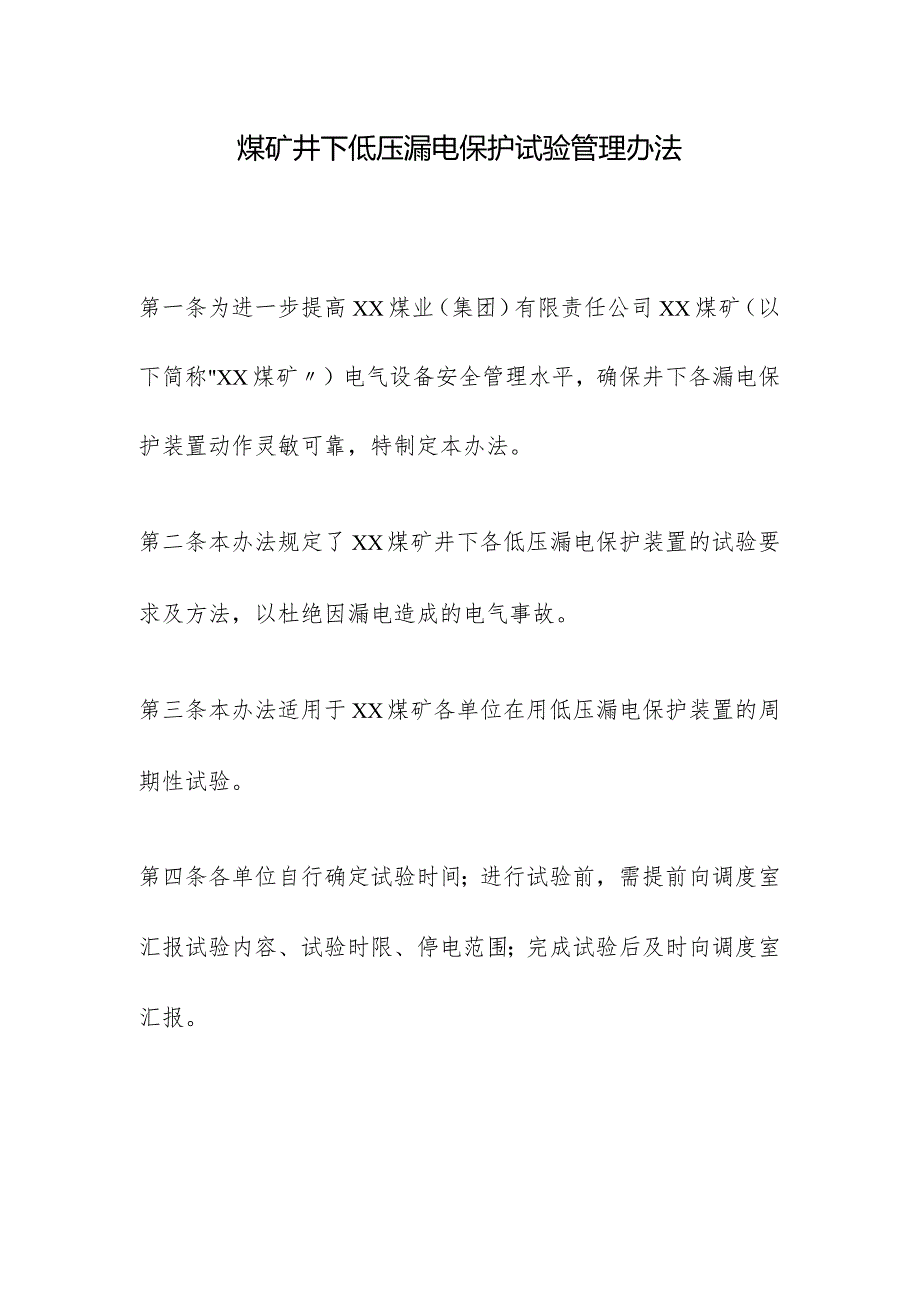 煤矿井下低压漏电保护试验管理办法
第一条为进一步提高XX煤业（集团）有限责任公司XX煤矿（以
下简称"XX煤矿〃）电气设备安全管理水平，确保井下各漏电保
护装置动作灵敏可靠，特制定本办法。
第二条本办法规定了XX煤矿井下各低压漏电保护装置的试验要
求及方法，以杜绝因漏电造成的电气事故。
第三条本办法适用于XX煤矿各单位在用低压漏电保护装置的周
期性试验。
第四条各单位自行确定试验时间；进行试验前，需提前向调度室
汇报试验内容、试验时限、停电范围；完成试验后及时向调度室
汇报。